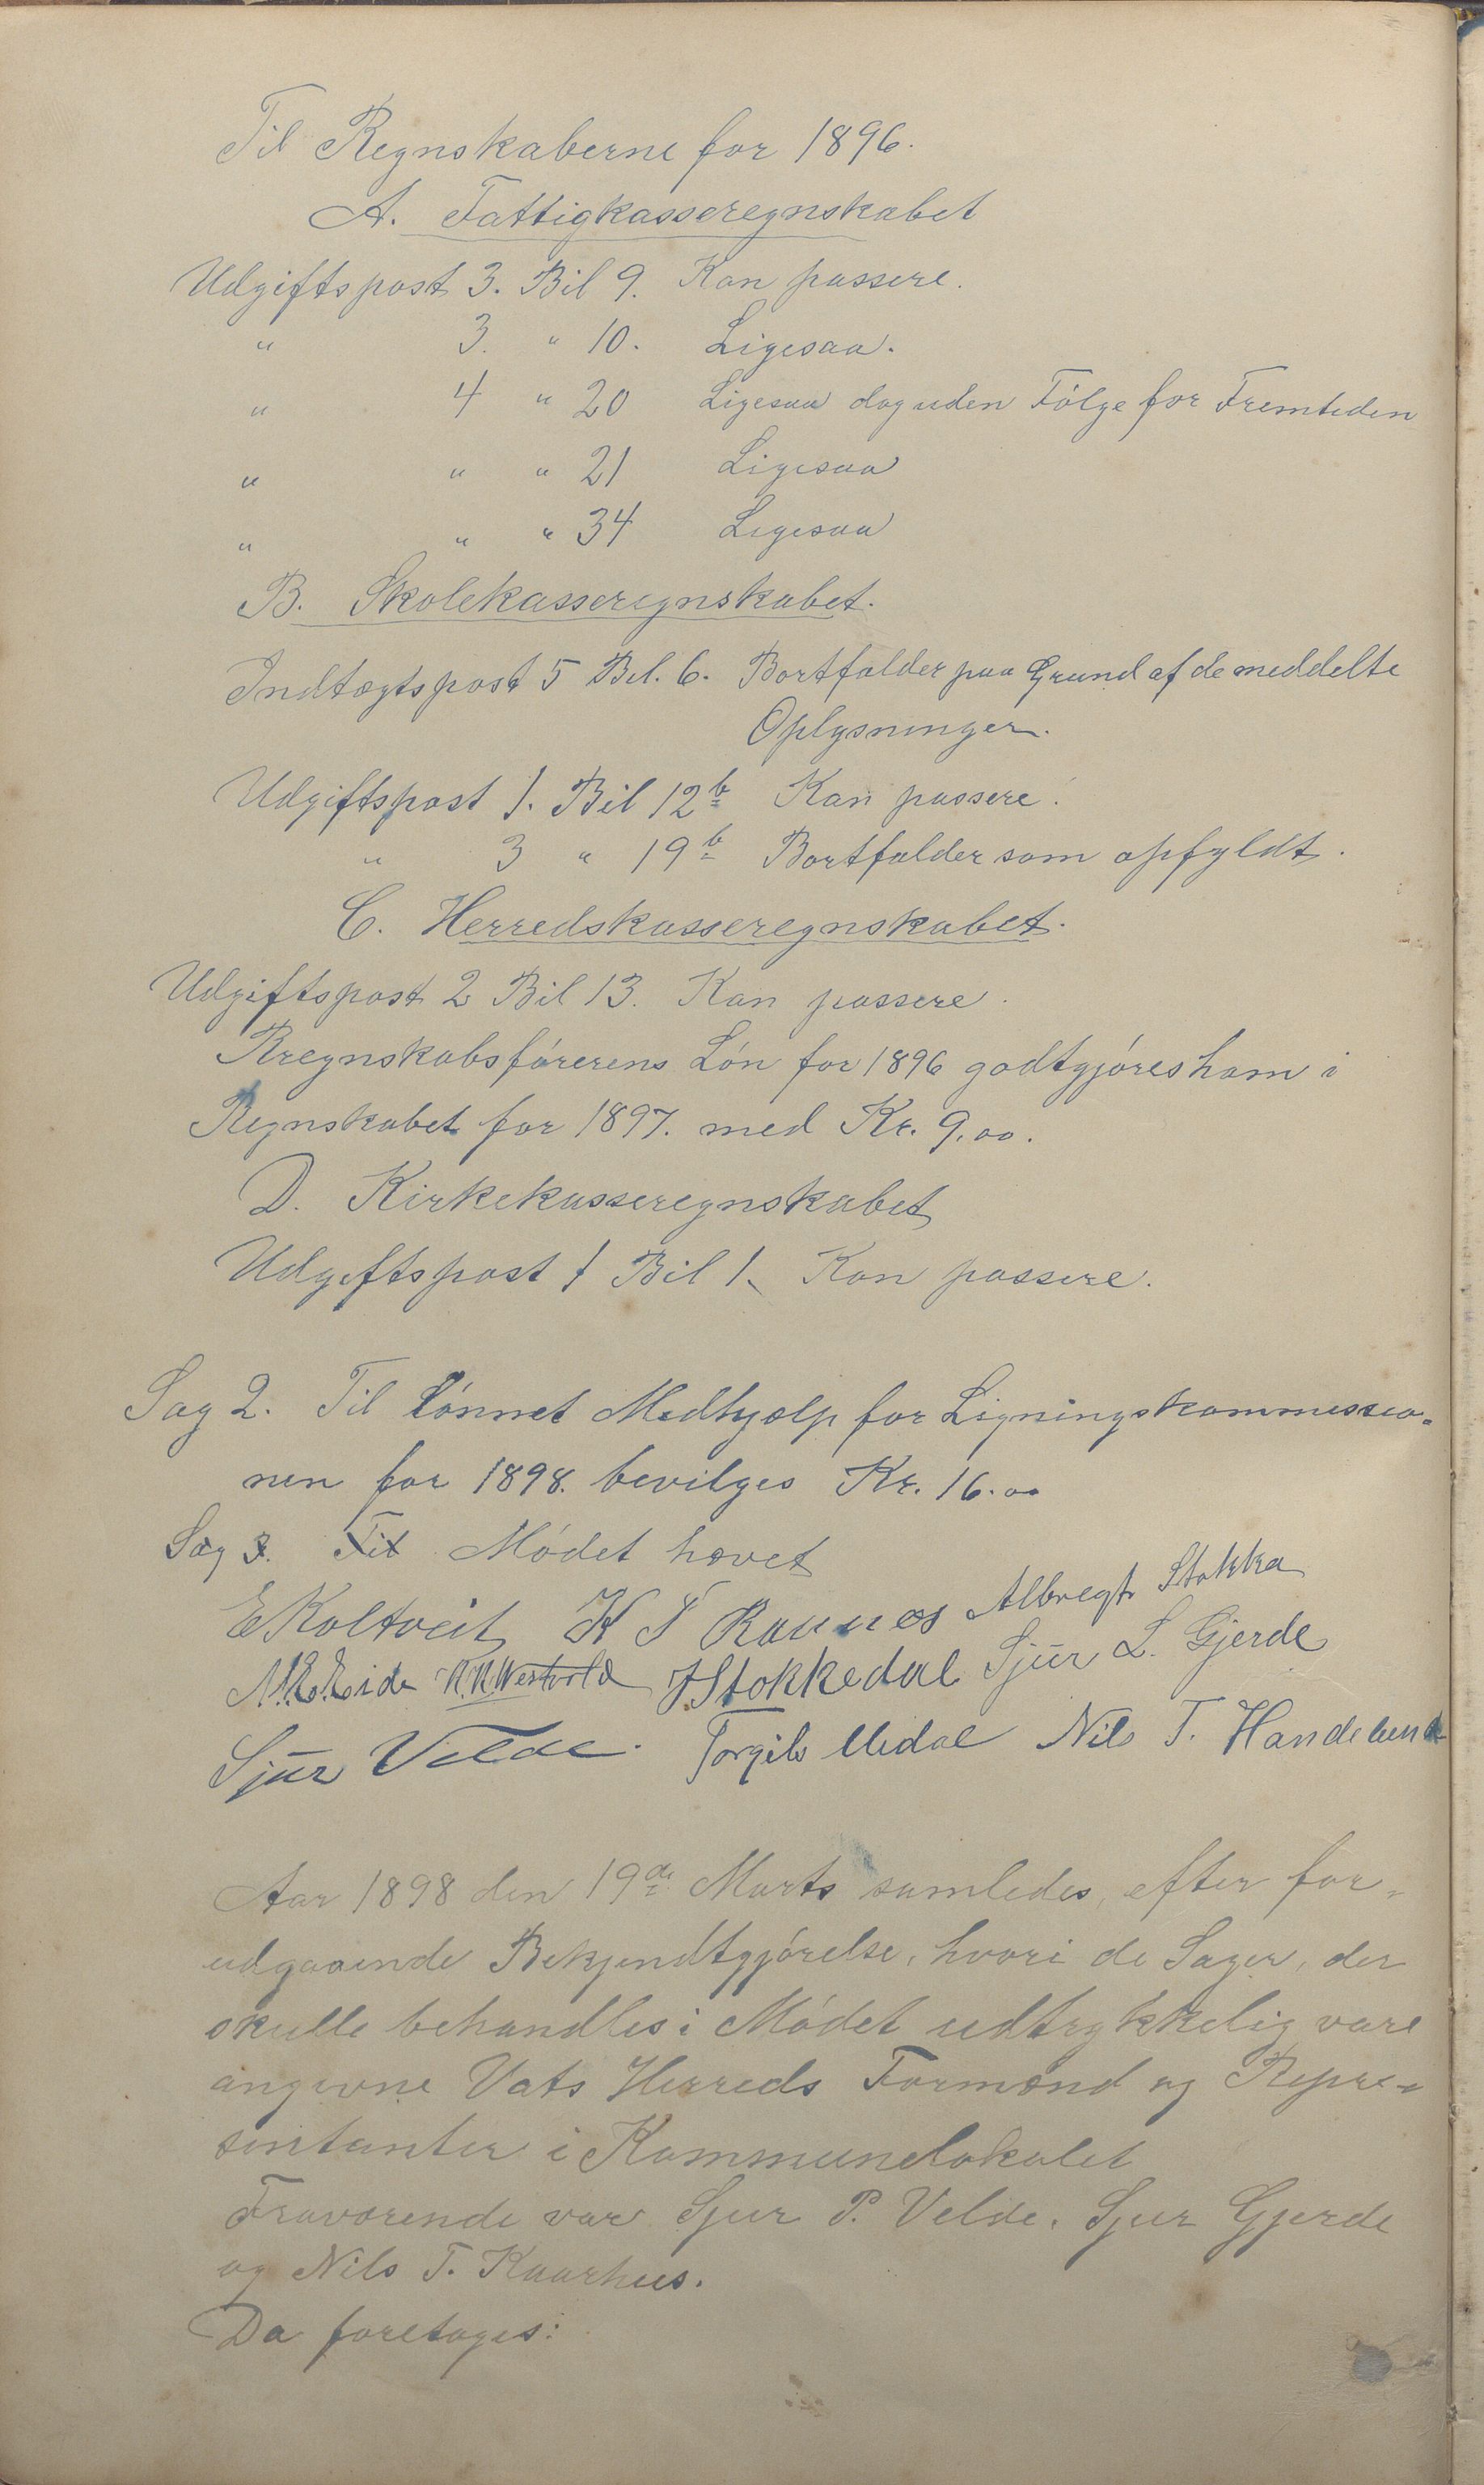 Til Regnskaberne for 1896.
A. Fattigkasseregnskabet
Udgiftspost 3. Bil 9. Kan passere.
" 3. " 10. Ligesaa.
" 4 " 20 Ligesaa dog uden Følge for Fremtiden
" " " 21 Ligesaa
" " " 34 Ligesaa
B. Skolekasseregnskabet.
Indtægtspost 5 Bil. 6. Bortfalder paa Grund af de meddelte
Oplysninger.
Udgiftspost 1. Bil 12b Kan passere.
" 3 " 19b Bortfalder som opfyldt.
C. Herredskasseregnskabet.
Udgiftspost 2 Bil 13. Kan passere.
Rregnskabsførerens Løn for 1896 godtgjøres ham i
Regnskabet for 1897. med Kr. 9.00.
D. Kirkekasseregnskabet
Udgiftspost 1 Bil 1. Kan passere.
Sag 2. Til Lønnet Medhjælp for Ligningskommissio-
nen for 1898. bevilges Kr. 16.00
Sag 3. Til Mødet hævet
E Koltveit K T Raunes Albregt Stokka
M. E. Eide K. K. Westvold J Stokkedal Sjur L. Gjerde
Sjur Velde. Torgils Midal Nils T. Handeland
Aar 1898 den 19de Marts samledes, efter for-
udgaaende Bekjendtgjørelse, hvori de Sager, der
skulle behandles i Mødet udtrykkelig vare
angivne Vats Herreds Formænd og Repre-
sentanter i Kommunelokalet
Fraværende var Sjur P. Velde, Sjur Gjerde
og Nils T. Kaarhus.
Da foretages: